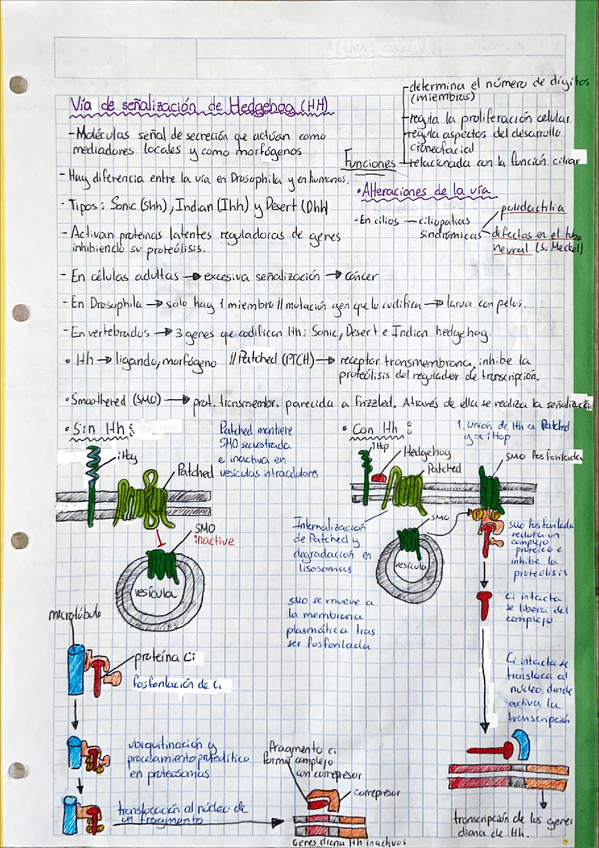 Vía de señalización de Hedgehog (HH)
- Moléculas señal de secreción que actúan como
mediadores locales y como morfógenos
Funciones
determina el número de dígitos
(miembros)
regula la proliferación celular
regula aspectos del desarrollo
craneofacial
relacionada con la función ciliar
- Hay diferencia entre la vía en Drosophila y en humanos.
- Tipos: Sonic (Shh), Indian (Ihh) y Desert (Dhh)
- Activan proteínas latentes reguladoras de genes
inhibiendo su proteólisis.
• Alteraciones de la vía
- En cilios → ciliopatías
sindrómicas
polidactilia
defectos en el tubo
neural (S. Meckel)
- En células adultas → excesiva señalización → cáncer
- En Drosophila → solo hay 1 miembro // mutación gen que lo codifica → larva con pelos.
- En vertebrados → 3 genes que codifican Hh: Sonic, Desert e Indian hedgehog.
• Hh → ligando, morfógeno // Patched (PTCH) → receptor transmembrana, inhibe la
proteólisis del regulador de transcripción.
• Smoothered (SMO) → prot. transmembr. parecida a Frizzled. A través de ella se realiza la señalización
• Sin Hh:
Patched mantiene
SMO secuestrada
e inactiva en
vesículas intracelulares
iHog
Patched
SMO
inactive
vesícula
microtúbulo
proteína Ci
fosforilación de Ci
ubiquitinación y
procesamiento proteolítico
en proteosomas
translocación al núcleo de
un fragmento
Fragmento ci
forma complejo
con correpresor
correpresor
Genes diana Hh inactivos
• Con Hh:
1. unión de Hh a Patched
y a iHop
iHop
Hedgehog
Patched
SMO Fosforilada
Internalización
de Patched y
degradación en
lisosomas
SMO
vesícula
SMO se mueve a
la membrana
plasmática tras
ser fosforilada
SMO fosforilada
recluta un
complejo
proteico e
inhibe la
proteólisis
Ci intacta
se libera del
complejo
Ci intacta se
transloca al
núcleo, donde
activa la
transcripción
transcripción de los genes
diana de Hh.